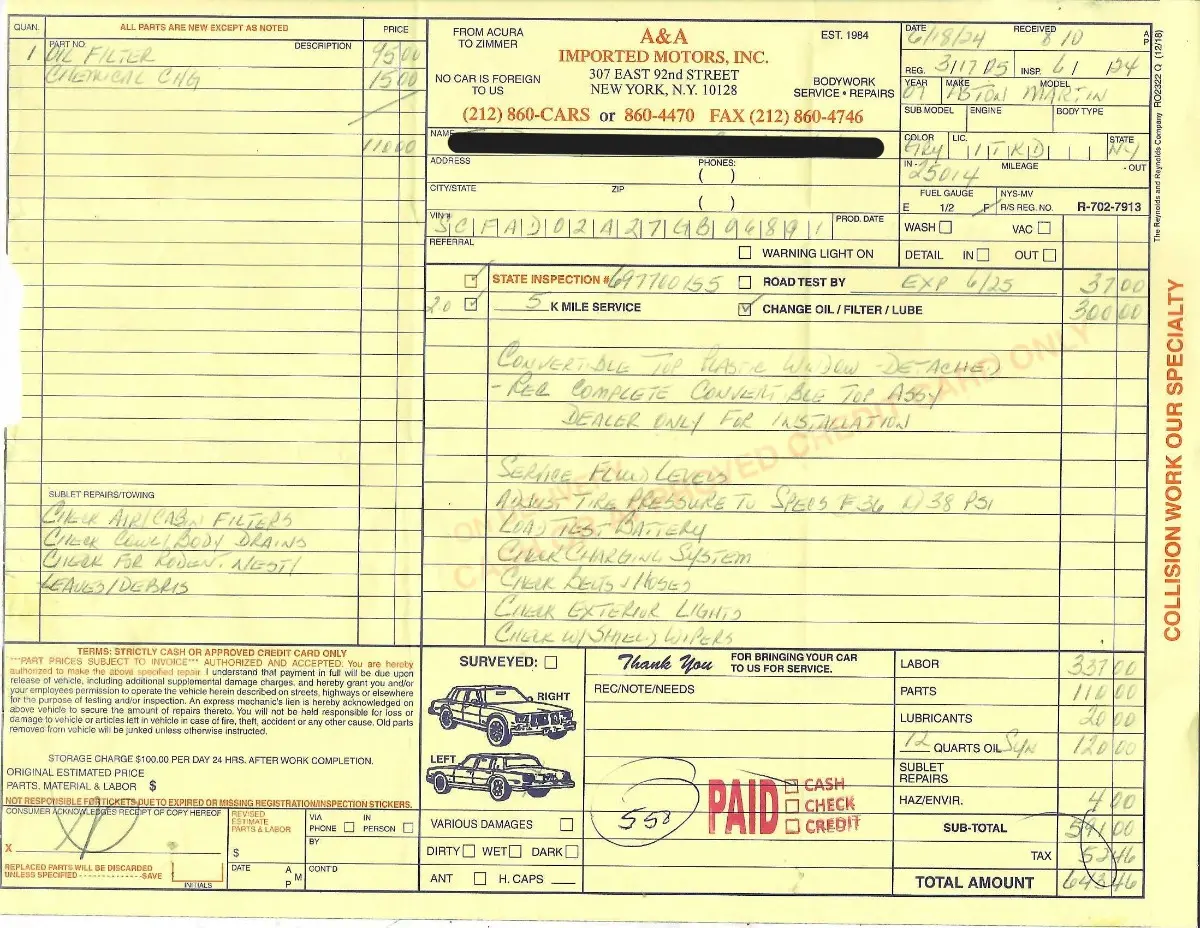 QUAN. ALL PARTS ARE NEW EXCEPT AS NOTED PRICE
PART NO. DESCRIPTION
1 OIL FILTER 95 00
CHEMICAL CHG 15 00
110 00
SUBLET REPAIRS/TOWING
CHECK AIR/CABIN FILTERS
CHECK COWL/BODY DRAINS
CHECK FOR RODENT NEST/
LEAVES/DEBRIS
FROM ACURA
TO ZIMMER
NO CAR IS FOREIGN
TO US
A&A
IMPORTED MOTORS, INC.
307 EAST 92nd STREET
NEW YORK, N.Y. 10128
EST. 1984
BODYWORK
SERVICE • REPAIRS
(212) 860-CARS or 860-4470 FAX (212) 860-4746
NAME
ADDRESS PHONES:
( )
CITY/STATE ZIP
( )
VIN # SCFAD02A27GB96891 PROD. DATE
REFERRAL
WARNING LIGHT ON
DATE 6/18/24 RECEIVED 8 10 A P
REG. 3/17 DS INSP. 6/ /24
YEAR 07 MAKE ASTON MODEL MARTIN
SUB MODEL ENGINE BODY TYPE
COLOR GRY LIC. 1TKD STATE NY
IN - 25014 MILEAGE - OUT
FUEL GAUGE NYS-MV
E 1/2 F R/S REG. NO. R-702-7913
WASH VAC
DETAIL IN OUT
STATE INSPECTION # 697700155 ROAD TEST BY EXP 6/25 37 00
20 5 K MILE SERVICE CHANGE OIL / FILTER / LUBE 300 00
CONVERTIBLE TOP PLASTIC WINDOW - DETACHED
- REC COMPLETE CONVERTIBLE TOP ASSY
DEALER ONLY FOR INSTALLATION
SERVICE FLUID LEVELS
ADJUST TIRE PRESSURE TO SPECS F 36 R/38 PSI
LOAD TEST BATTERY
CHECK CHARGING SYSTEM
CHECK BELTS & HOSES
CHECK EXTERIOR LIGHTS
CHECK W/SHIELD WIPERS
APPROVED CREDIT CARD ONLY
TERMS: STRICTLY CASH OR APPROVED CREDIT CARD ONLY
***PART PRICES SUBJECT TO INVOICE*** AUTHORIZED AND ACCEPTED: You are hereby
authorized to make the above specified repair. I understand that payment in full will be due upon
release of vehicle, including additional supplemental damage charges, and hereby grant you and/or
your employees permission to operate the vehicle herein described on streets, highways or elsewhere
for the purpose of testing and/or inspection. An express mechanic's lien is hereby acknowledged on
above vehicle to secure the amount of repairs thereto. You will not be held responsible for loss or
damage to vehicle or articles left in vehicle in case of fire, theft, accident or any other cause. Old parts
removed from vehicle will be junked unless otherwise instructed.
STORAGE CHARGE $100.00 PER DAY 24 HRS. AFTER WORK COMPLETION.
ORIGINAL ESTIMATED PRICE
PARTS, MATERIAL & LABOR $
NOT RESPONSIBLE FOR TICKETS DUE TO EXPIRED OR MISSING REGISTRATION/INSPECTION STICKERS.
CONSUMER ACKNOWLEDGES RECEIPT OF COPY HEREOF
X
REPLACED PARTS WILL BE DISCARDED
UNLESS SPECIFIED - - - - - - - - - - - - - -SAVE
INITIALS
REVISED
ESTIMATE
PARTS & LABOR
$
VIA
PHONE
IN
PERSON
BY
DATE A M P CONT'D
SURVEYED:
RIGHT
LEFT
VARIOUS DAMAGES
DIRTY WET DARK
ANT H. CAPS
Thank You FOR BRINGING YOUR CAR
TO US FOR SERVICE.
REC/NOTE/NEEDS
558
PAID
CASH
CHECK
CREDIT
LABOR 337 00
PARTS 110 00
LUBRICANTS 20 00
12 QUARTS OIL Syn 120 00
SUBLET
REPAIRS
HAZ/ENVIR. 4 00
SUB-TOTAL 591 00
TAX 52 46
TOTAL AMOUNT 643 46
The Reynolds and Reynolds Company RO2322 Q (12/18)
COLLISION WORK OUR SPECIALTY